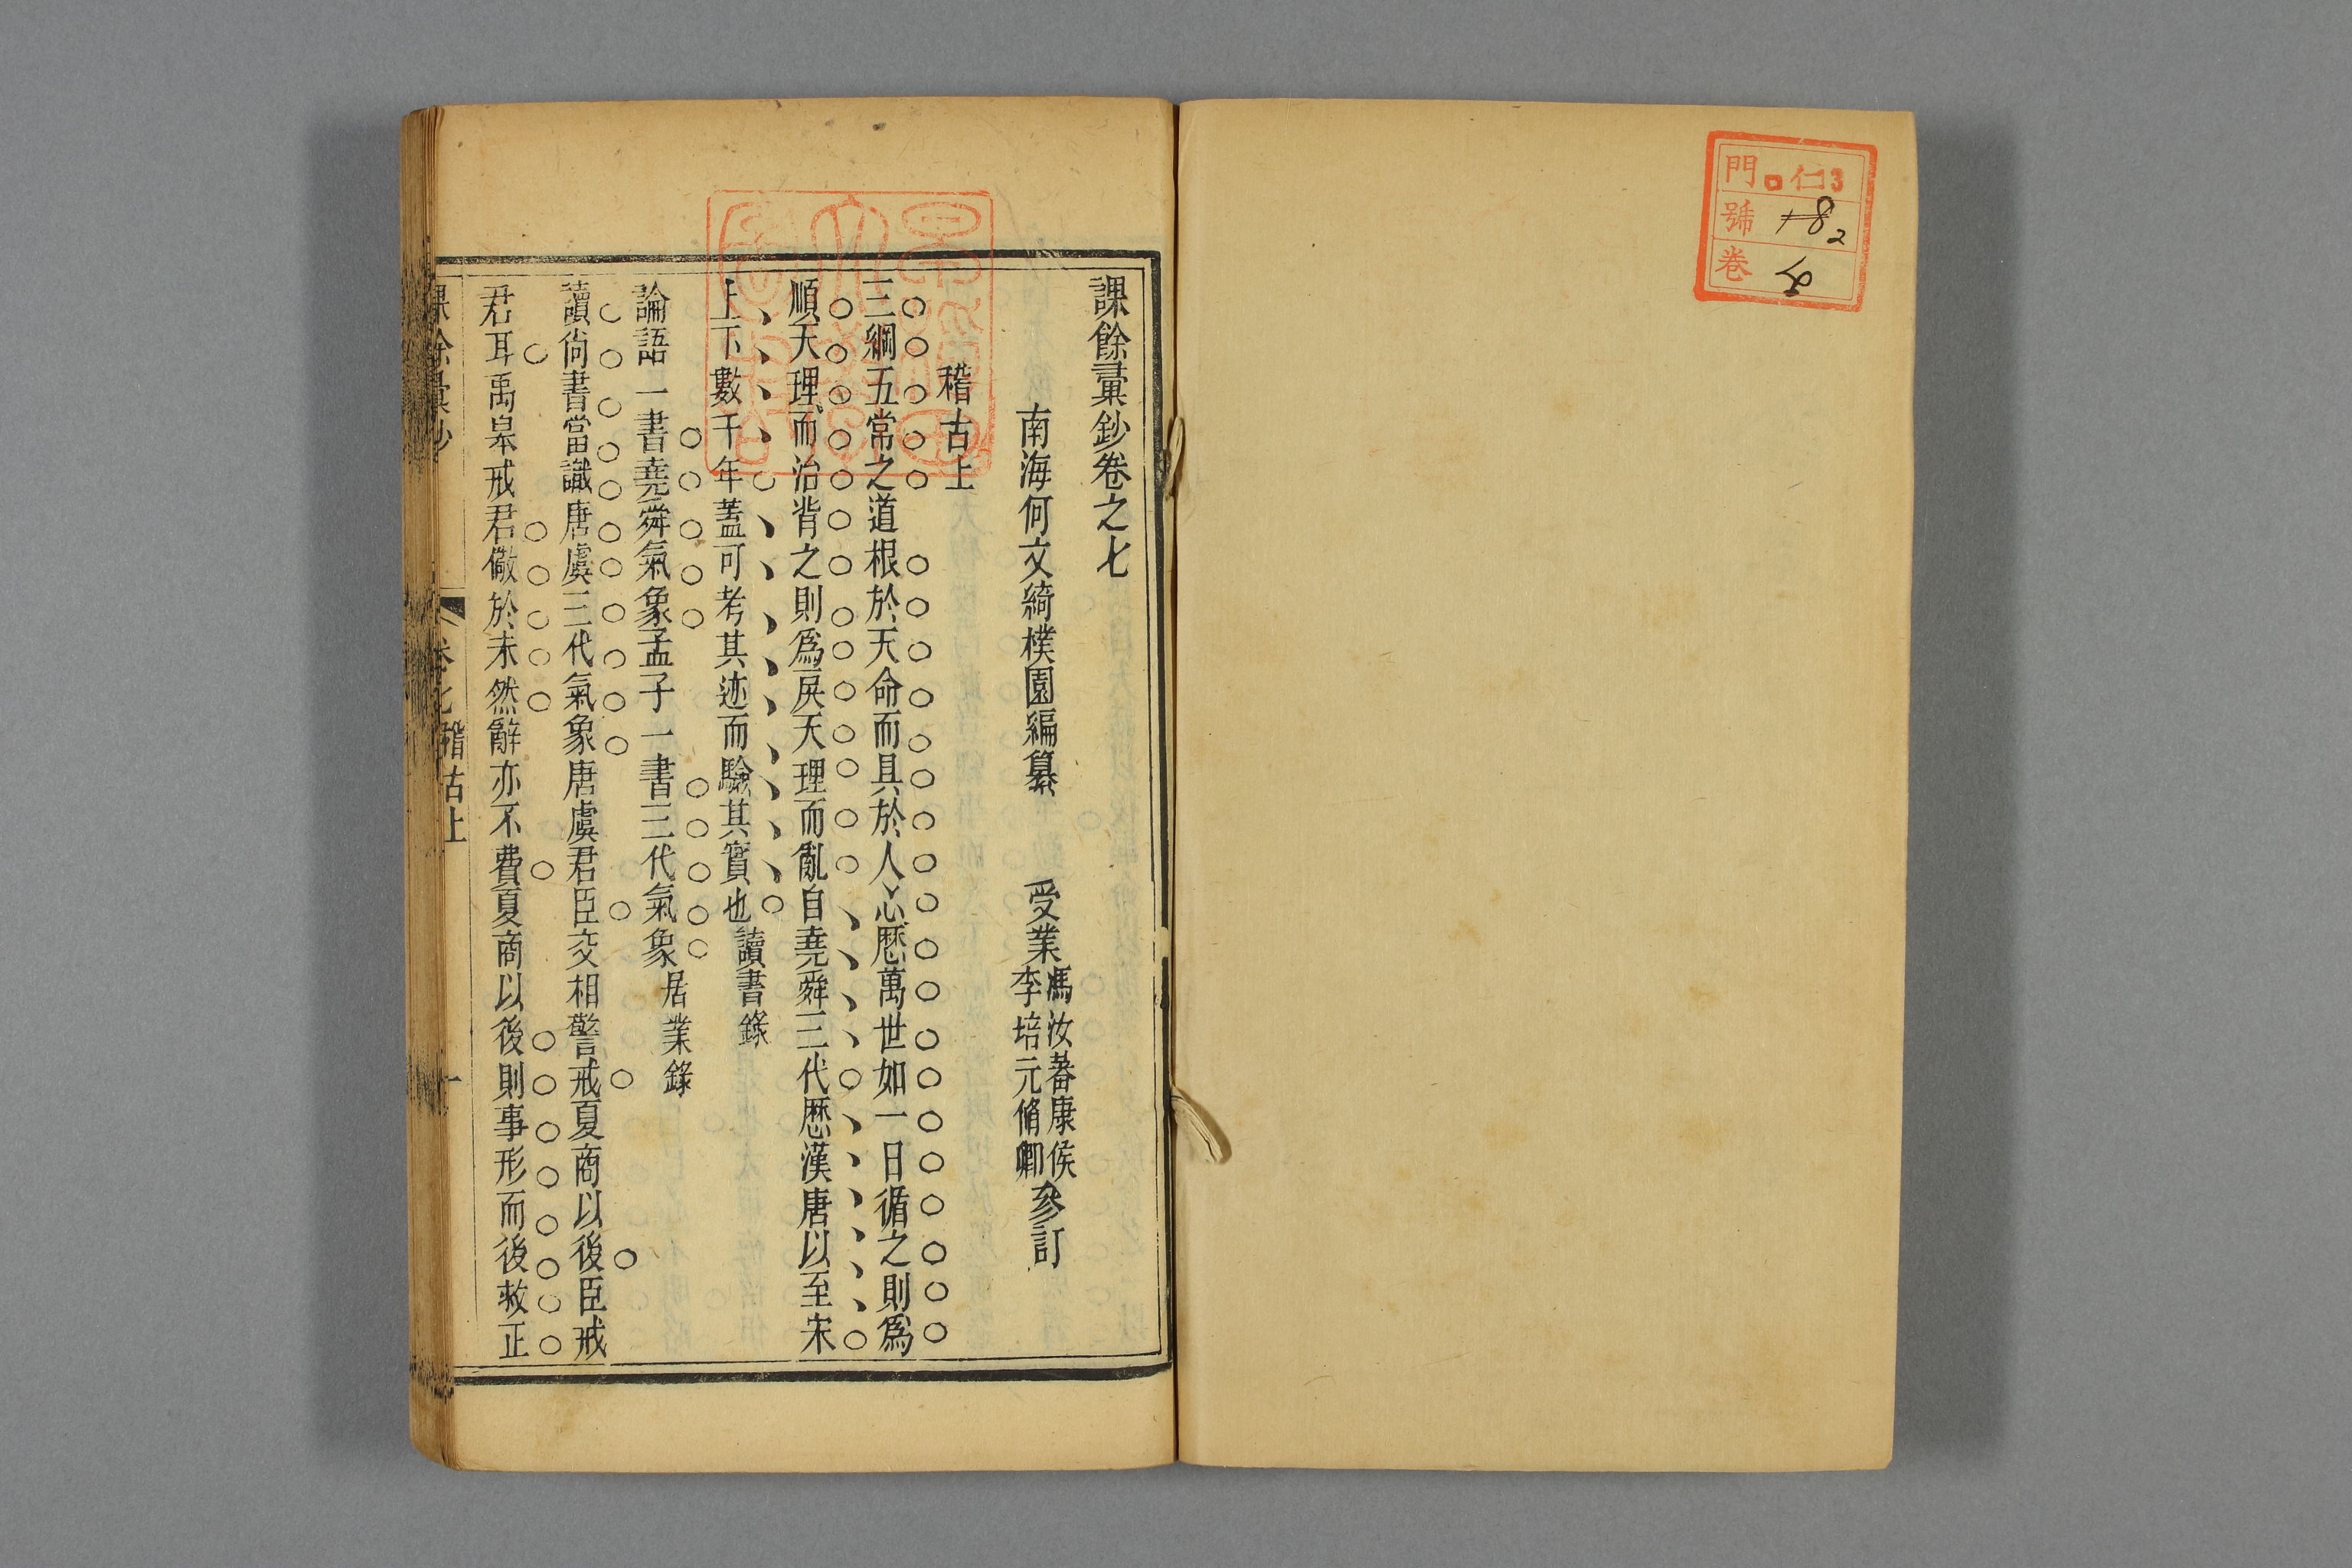 門 仁13
號 18 2
卷
課餘彙鈔卷之七
南海何文綺樸園編纂 受業馮汝蕃康侯李培元脩卿參訂
稽古上
三綱五常之道根於天命而具於人心歷萬世如一日循之則爲
順天理而治背之則爲戾天理而亂自堯舜三代歷漢唐以至宋
上下數千年蓋可考其迹而驗其實也讀書錄
論語一書堯舜氣象孟子一書三代氣象居業錄
讀尙書當識唐虞三代氣象唐虞君臣交相警戒夏商以後臣戒
君耳禹皋戒君儆於未然辭亦不費夏商以後則事形而後救正
課餘彙鈔 卷七稽古上 一